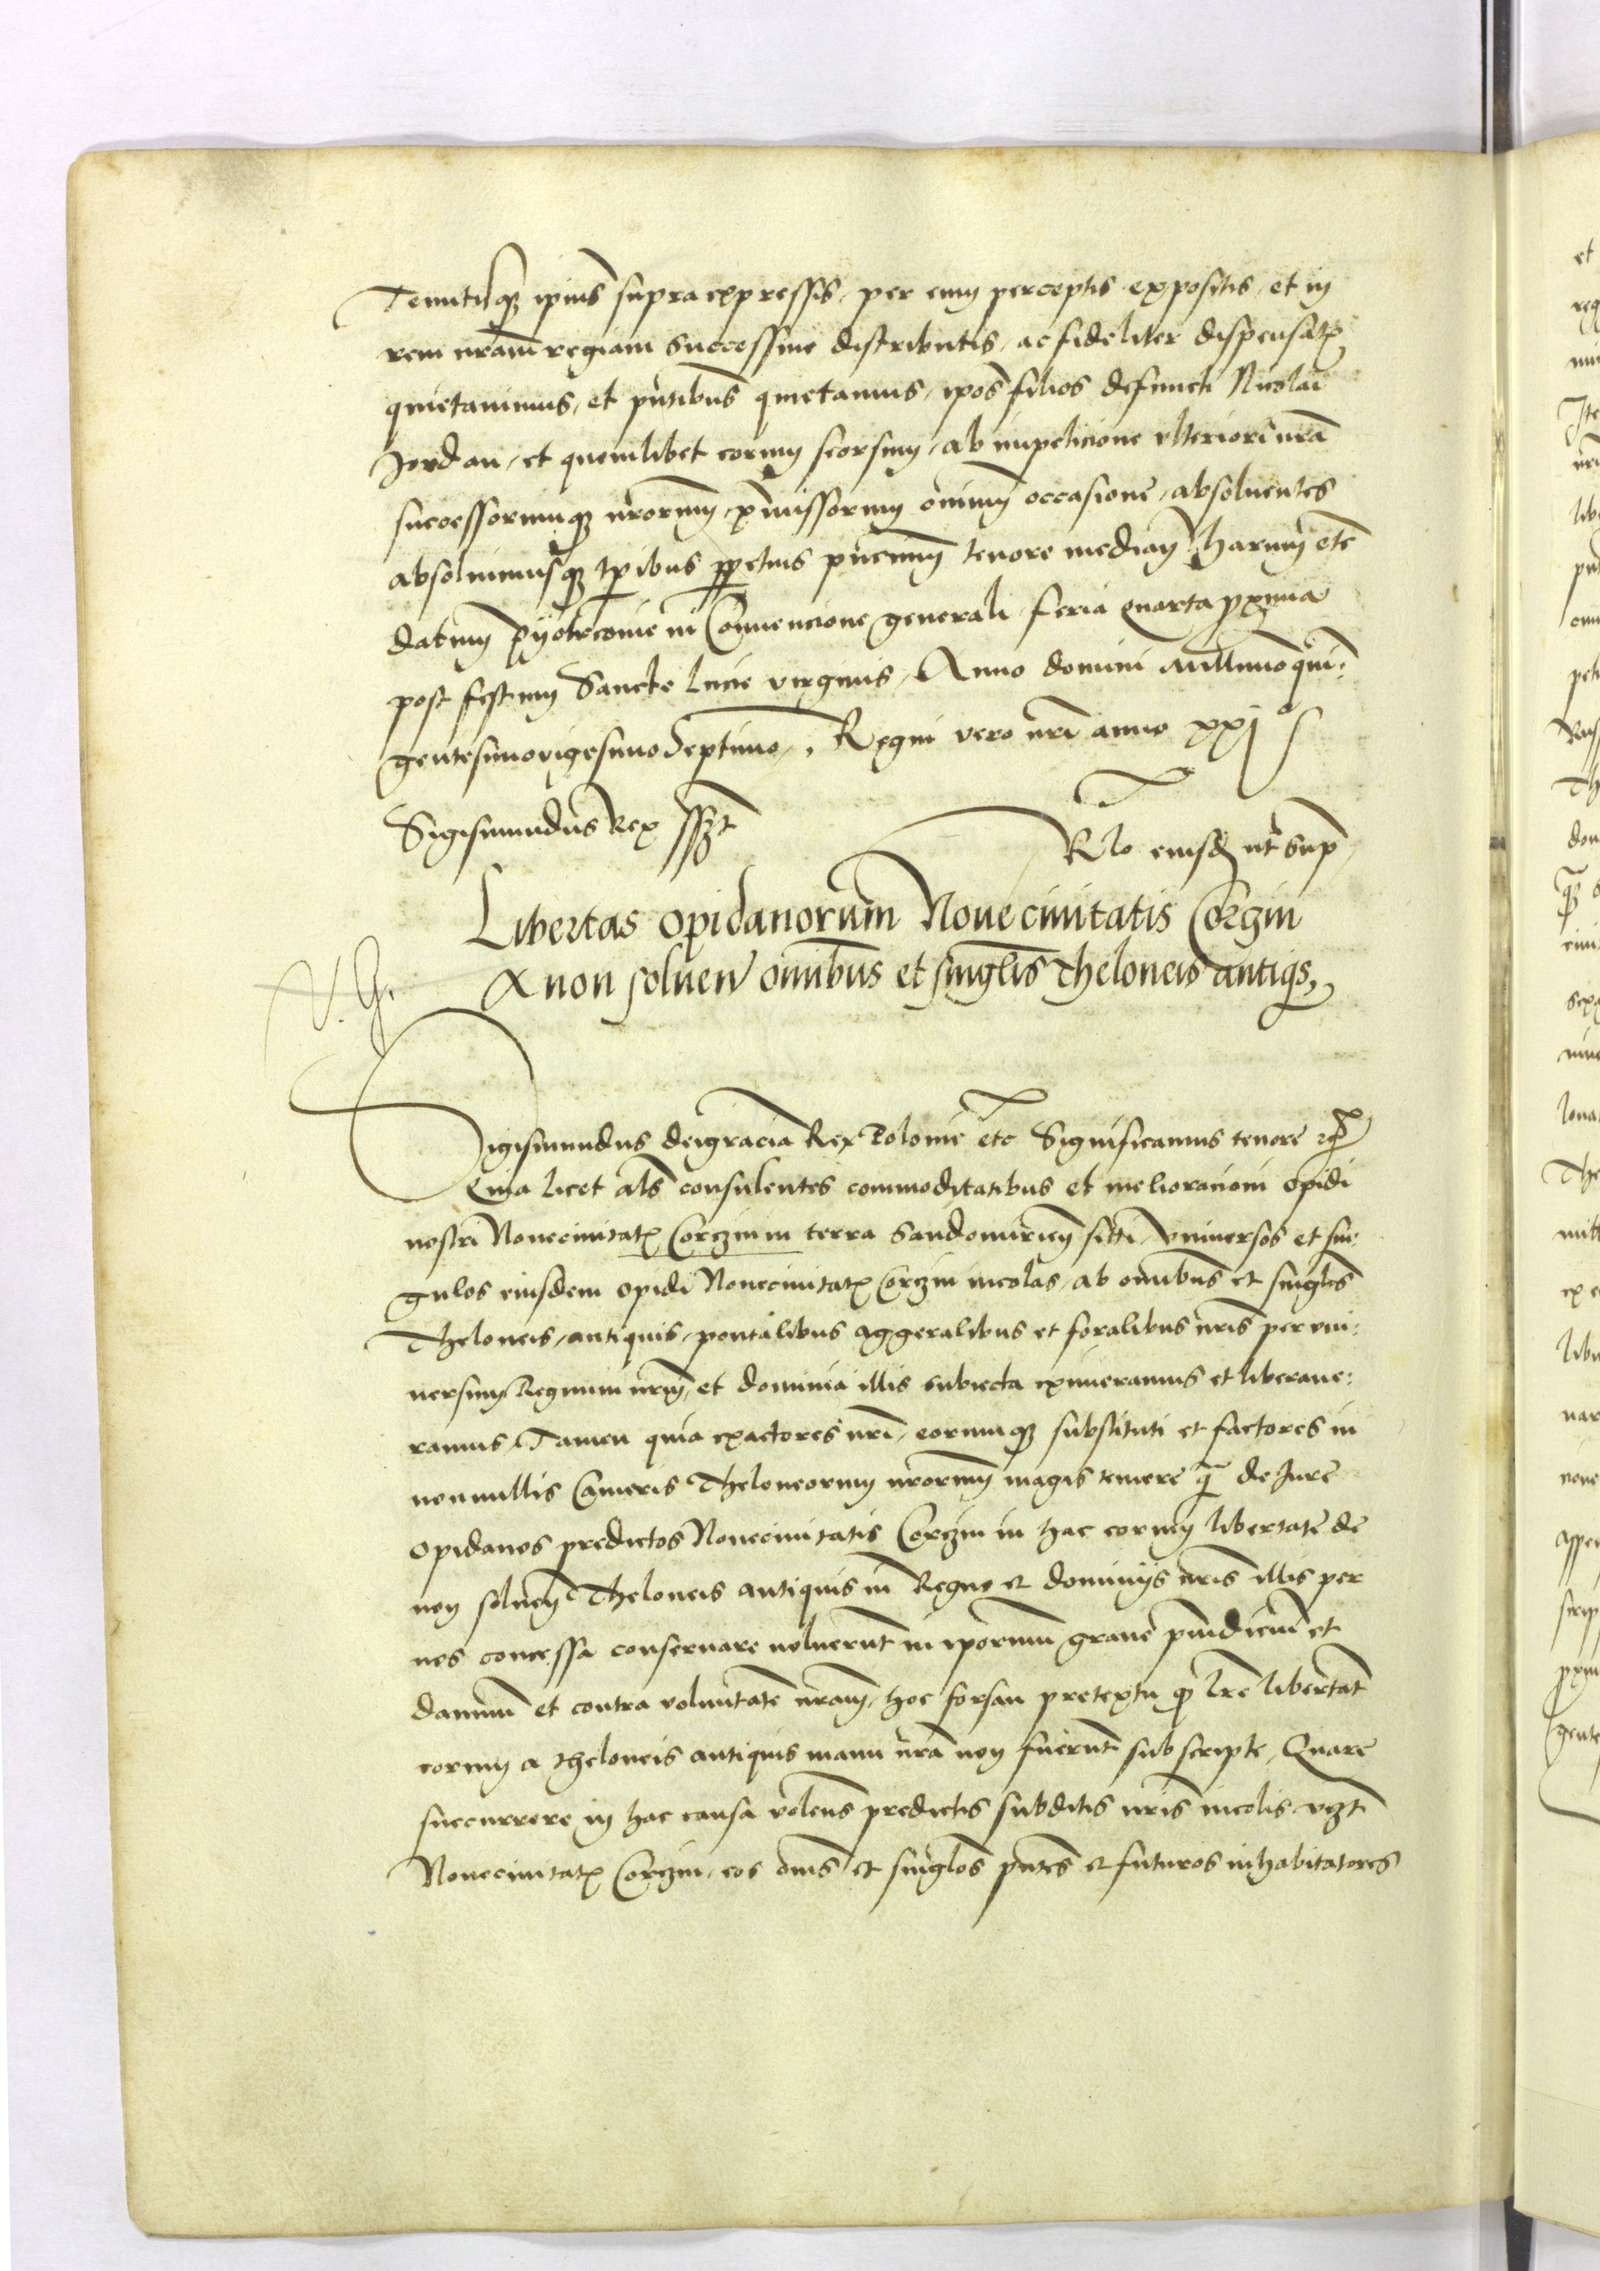 Tenutisq3 ipius supra expressis, per eum perceptis expositis, et in
rem nram regiam successive distributis, ac fideliter dispensat
quietavimus, et pntibus quietamus, ipos filios defuncti Nicolai
Jordan, et quemlibet eorum seorsum, ab impeticione ulteriori nra
successorumq3 nrorum, pmissorum omnium occasione, absolventes
absolvimusq3 tpibus ppetuis pncium tenore median Harum etc
datum Pyothrcovie in Convencione generali feria quarta pxima
post festum Sancte Lucie virginis, Anno domini Millimo quin:
gentesimo vigesimo Septimo, Regni vero nri anno xxj°
Sigismundus Rex sszt
Rlo eiusd ut sup
Libertas opidanorum Nove civitatis Corzin
A non solven omnibus et singlis Theloneis antiqs,
V. G.
Sigismundus dei gracia Rex Polonie etc Significamus tenore
Quia licet als consulentes commoditatibus et melioracioni opidi
nostri Novecivitat Corczin in terra Sandomirien siti, Universos et sin:
gulos eiusdem opidi Novecivitat Corczin incolas, ab omibus et singlis
Theloneis, antiquis, pontalibus aggeralibus et foralibus nris per uni:
versum Regnum nrum, et dominia illis subiecta exemeramus et liberave:
ramus, Tamen quia exactores nri, eorumq3 substituti et factores in
nonnullis Cameris Theloneorum nrorum magis temere q de Jure
opidanos predictos Novecivitatis Corczin in hac eorum libertate de
non solven Theloneis antiquis in Regno et dominijs nris illis per
nos concessa conservare noluerunt in iporum grave piudicium et
damnum et contra voluntate nram, hoc forsan pretextu q lre libertat
eorum a theloneis antiquis manu nra non fuerunt subscripte, Quare
succurrere in hac causa volens predictis subditis nris incolis vzt
Novecivitat Corczin, eos oms et singlos pntes et futuros inhabitatores